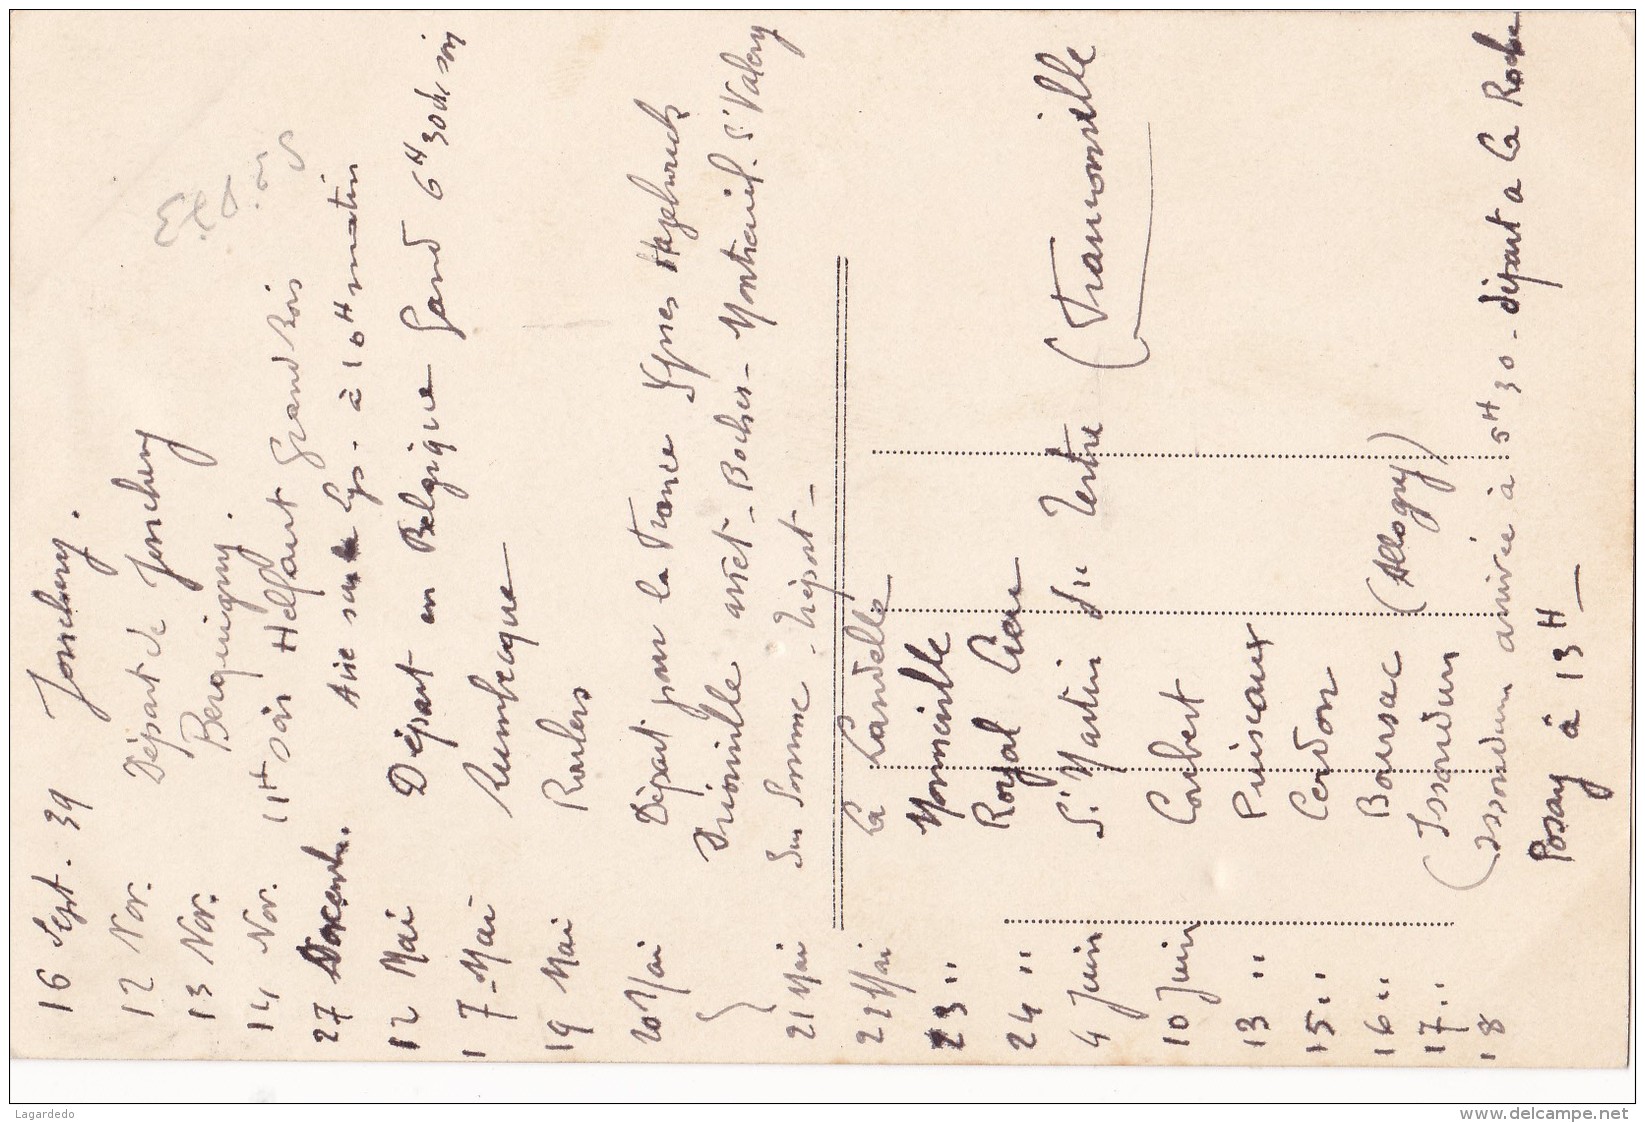 16 Sept. 39 Jonchery.
12 Nov. Départ de Jonchery
13 Nov. Berguigny.
14 Nov. 11H soir Helfaut Grand Bois
27 Décembre. Aire sur la Lys - à 10H matin
12 Mai Départ en Belgique Gand 6H30 du soir
17 - Mai Rumbecque
19 Mai Roulers
20 Mai Départ pour la France Ypres Hazebrouck
Drionville arrêt - Boches - Montreuil. St Valery
21 Mai sur Somme - Tréport -
22 Mai La Landelle
23 " Monneville
24 " Royal Lieu
4 Juin St Martin du Tertre (Franconville
10 Juin Corbert
13 " Puiseaux
15 " Cerdon
16 " Boursac (Allogny)
17 " (Issoudun
18 (Issoudun arrivée à 5H30 - départ à La Roche
Posay à 13H -
Lagardedo
www.delcampe.net